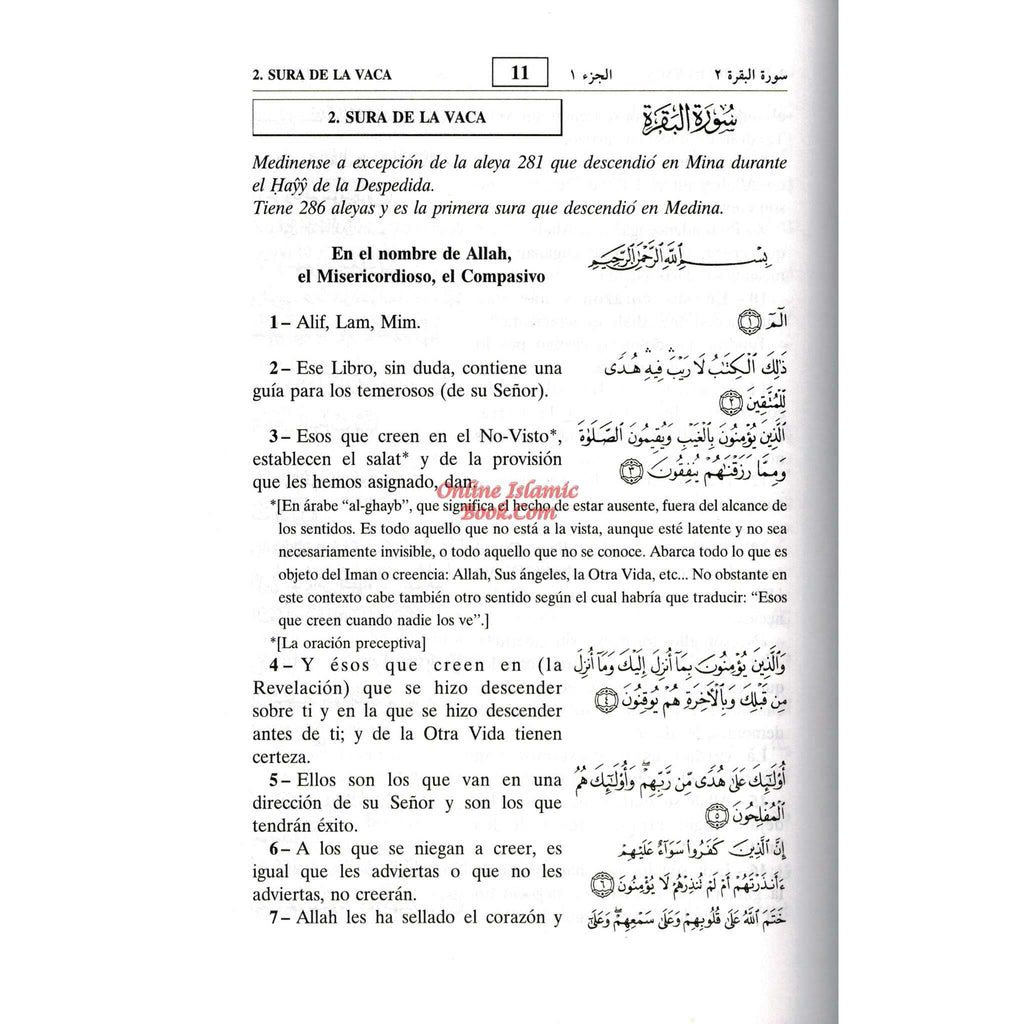 2. SURA DE LA VACA
11
الجزء ١
سورة البقرة ٢
2. SURA DE LA VACA
سُورَةُ البَقَرَةِ
Medinense a excepción de la aleya 281 que descendió en Mina durante
el Ḥaŷŷ de la Despedida.
Tiene 286 aleyas y es la primera sura que descendió en Medina.
En el nombre de Allah,
el Misericordioso, el Compasivo
بِسْمِ اللَّهِ الرَّحْمَٰنِ الرَّحِيمِ
1– Alif, Lam, Mim.
الٓمٓ ١
2– Ese Libro, sin duda, contiene una
guía para los temerosos (de su Señor).
ذَٰلِكَ الْكِتَابُ لَا رَيْبَ ۛ فِيهِ ۛ هُدًى
لِّلْمُتَّقِينَ ٢
3– Esos que creen en el No-Visto*,
establecen el salat* y de la provisión
que les hemos asignado, dan.
الَّذِينَ يُؤْمِنُونَ بِالْغَيْبِ وَيُقِيمُونَ الصَّلَوٰةَ
وَمِمَّا رَزَقْنَاهُمْ يُنفِقُونَ ٣
Online Islamic
Book.Com
*[En árabe “al-ghayb”, que significa el hecho de estar ausente, fuera del alcance de
los sentidos. Es todo aquello que no está a la vista, aunque esté latente y no sea
necesariamente invisible, o todo aquello que no se conoce. Abarca todo lo que es
objeto del Iman o creencia: Allah, Sus ángeles, la Otra Vida, etc... No obstante en
este contexto cabe también otro sentido según el cual habría que traducir: “Esos
que creen cuando nadie los ve”.]
*[La oración preceptiva]
4– Y ésos que creen en (la
Revelación) que se hizo descender
sobre ti y en la que se hizo descender
antes de ti; y de la Otra Vida tienen
certeza.
وَالَّذِينَ يُؤْمِنُونَ بِمَا أُنزِلَ إِلَيْكَ وَمَا أُنزِلَ
مِن قَبْلِكَ وَبِالْآخِرَةِ هُمْ يُوقِنُونَ ٤
5– Ellos son los que van en una
dirección de su Señor y son los que
tendrán éxito.
أُوْلَٰئِكَ عَلَىٰ هُدًى مِّن رَّبِّهِمْ ۖ وَأُوْلَٰئِكَ هُمُ
الْمُفْلِحُونَ ٥
6– A los que se niegan a creer, es
igual que les adviertas o que no les
adviertas, no creerán.
إِنَّ الَّذِينَ كَفَرُوا سَوَآءٌ عَلَيْهِمْ
ءَأَنذَرْتَهُمْ أَمْ لَمْ تُنذِرْهُمْ لَا يُؤْمِنُونَ ٦
7– Allah les ha sellado el corazón y
خَتَمَ اللَّهُ عَلَىٰ قُلُوبِهِمْ وَعَلَىٰ سَمْعِهِمْ ۖ وَعَلَىٰ